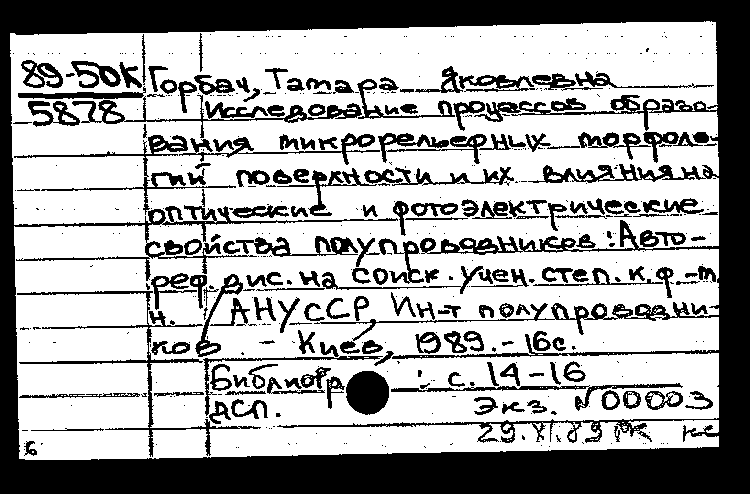 89-50К Горбач, Тамара Яковлевна
5878 Исследование процессов образо-
вания микрорельефных морфоло-
гий поверхности и их влияния на
оптические и фотоэлектрические
свойства полупроводников: Авто-
реф. дис. на соиск. учен. степ. к. ф.-м.
н. / АНУССР, Ин-т полупроводни-
ков - Киев, 1989. - 16с.
Библиогр : с. 14-16
ДСП. Экз. №00003
29.XI.89 РК кс
6